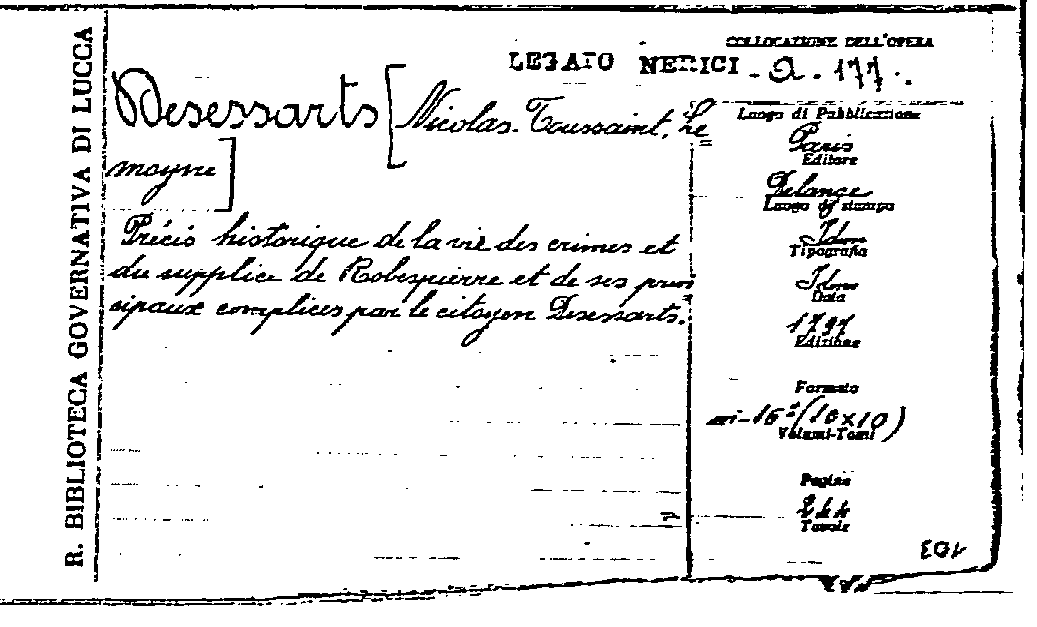 R. BIBLIOTECA GOVERNATIVA DI LUCCA
COLLOCAZIONE DELL'OPERA
LEGATO NERICI - a. 177.
Desessarts [Nicolas-Toussaint, Le
moyne]
Précis historique de la vie des crimes et
du supplice de Robespierre et de ses prin
cipaux complices par le citoyen Desessarts.
Luogo di Pubblicazione
Paris
Editore
Delance
Luogo di stampa
Idem
Tipografia
Idem
Data
1797
Edizione
Formato
in-16° (16x10)
Volumi-Tomi
Pagine
244
Tavole